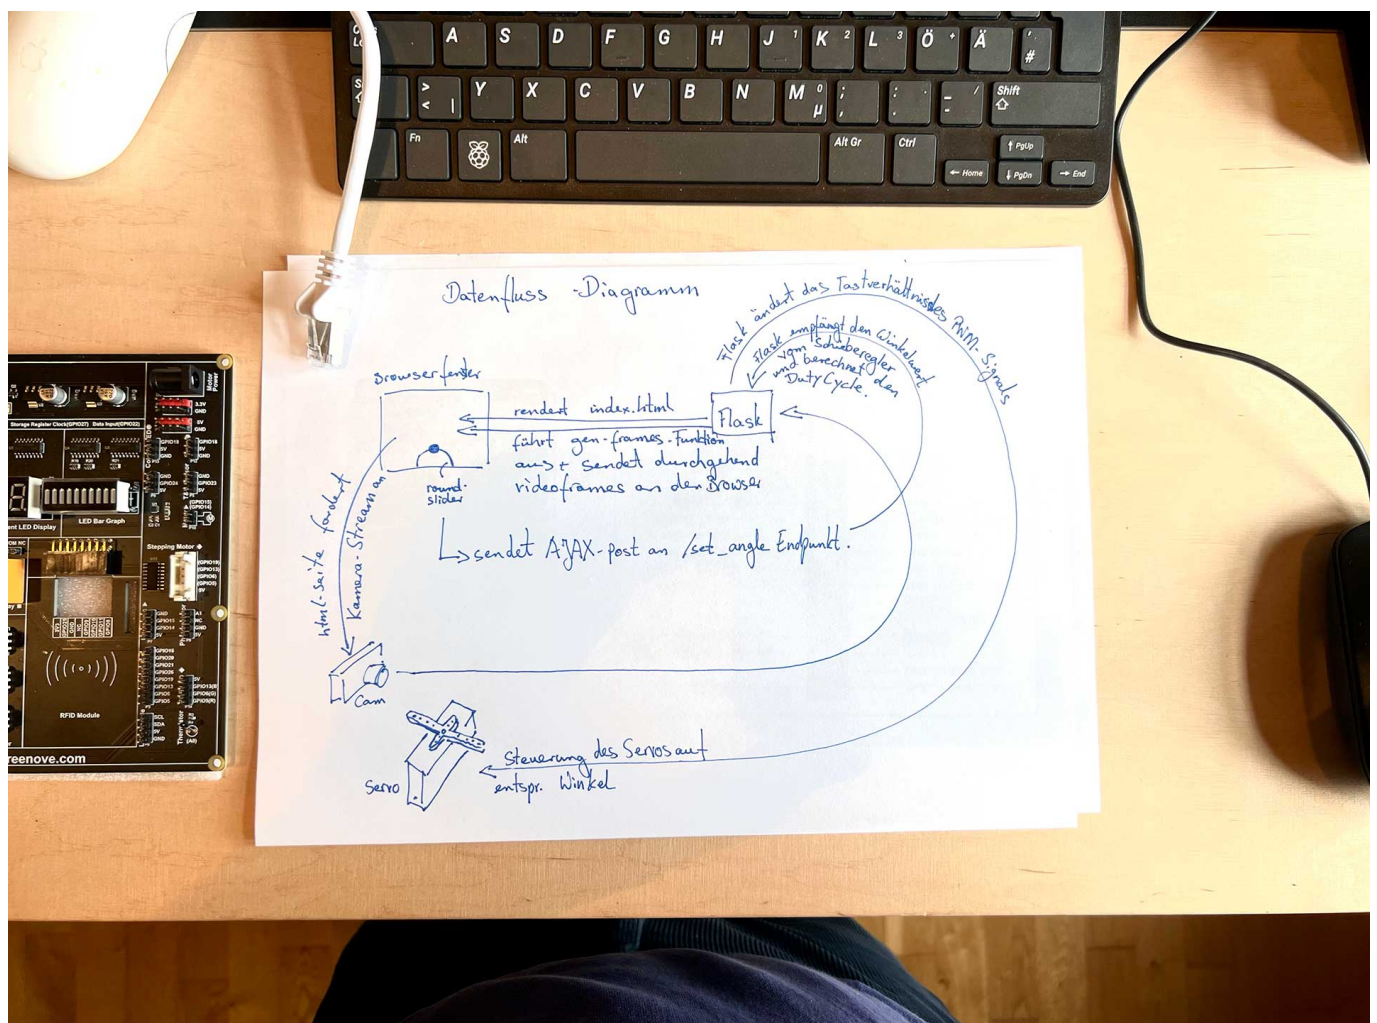 A S D F G H J 1 K 2 L 3 Ö + Ä ' #
> < | Y X C V B N M 0 µ ; , : . _ - / Shift
Fn Alt Alt Gr Ctrl PgUp
Home PgDn End
Datenfluss-Diagramm
Flask ändert das Tastverhältnis des PWM-Signals
Flask empfängt den Winkelwert
vom Schieberegler
und berechnet den
DutyCycle.
Browserfenster
rendert index.html
Flask
führt gen-frames-Funktion
aus + sendet durchgehend
videoframes an den Browser
round-
slider
sendet AJAX-post an /set_angle Endpunkt.
html-seite fordert
Kamera-Stream an
Cam
Servo
Steuerung des Servos auf
entspr. Winkel
Motor
Power
3.3V
GND
5V
GND
Storage Register Clock(GPIO27) Data Input(GPIO22)
LED Bar Graph
ent LED Display
Stepping Motor
RFID Module
SCL
SDA
5V
GND
reenove.com